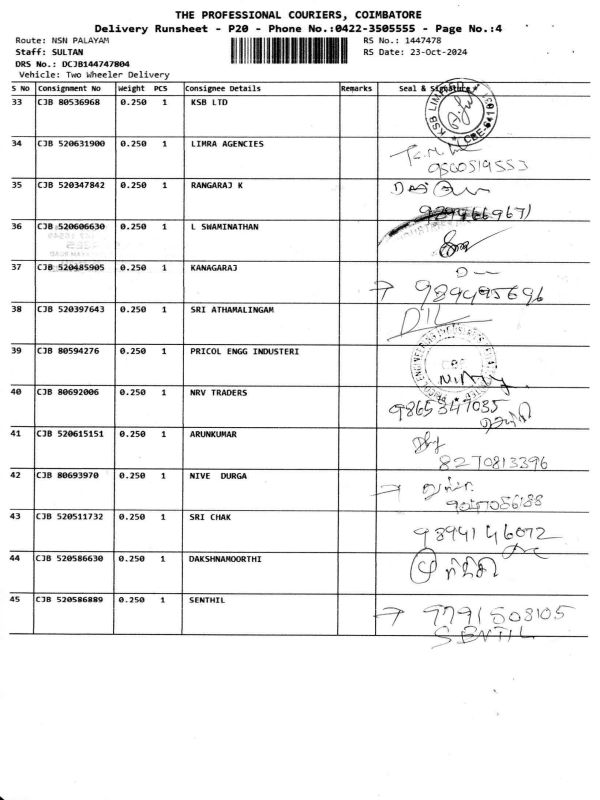 THE PROFESSIONAL COURIERS, COIMBATORE
Delivery Runsheet - P20 - Phone No.:0422-3505555 - Page No.:4
Route: NSN PALAYAM RS No.: 1447478
Staff: SULTAN RS Date: 23-Oct-2024
DRS No.: DCJB144747804
Vehicle: Two Wheeler Delivery
S No Consignment No Weight PCS Consignee Details Remarks Seal & Signature
33 CJB 80536968 0.250 1 KSB LTD
KSB LIMITED
34 CJB 520631900 0.250 1 LIMRA AGENCIES
9500519553
35 CJB 520347842 0.250 1 RANGARAJ K
9894669671
36 CJB 520606630 0.250 1 L SWAMINATHAN
37 CJB 520485905 0.250 1 KANAGARAJ
9894495696
38 CJB 520397643 0.250 1 SRI ATHAMALINGAM
39 CJB 80594276 0.250 1 PRICOL ENGG INDUSTERI
40 CJB 80692006 0.250 1 NRV TRADERS
9865347035
41 CJB 520615151 0.250 1 ARUNKUMAR
8270813396
42 CJB 80693970 0.250 1 NIVE DURGA
9047056188
43 CJB 520511732 0.250 1 SRI CHAK
9894146072
44 CJB 520586630 0.250 1 DAKSHNAMOORTHI
45 CJB 520586889 0.250 1 SENTHIL
→ 9791508105
SENTIL